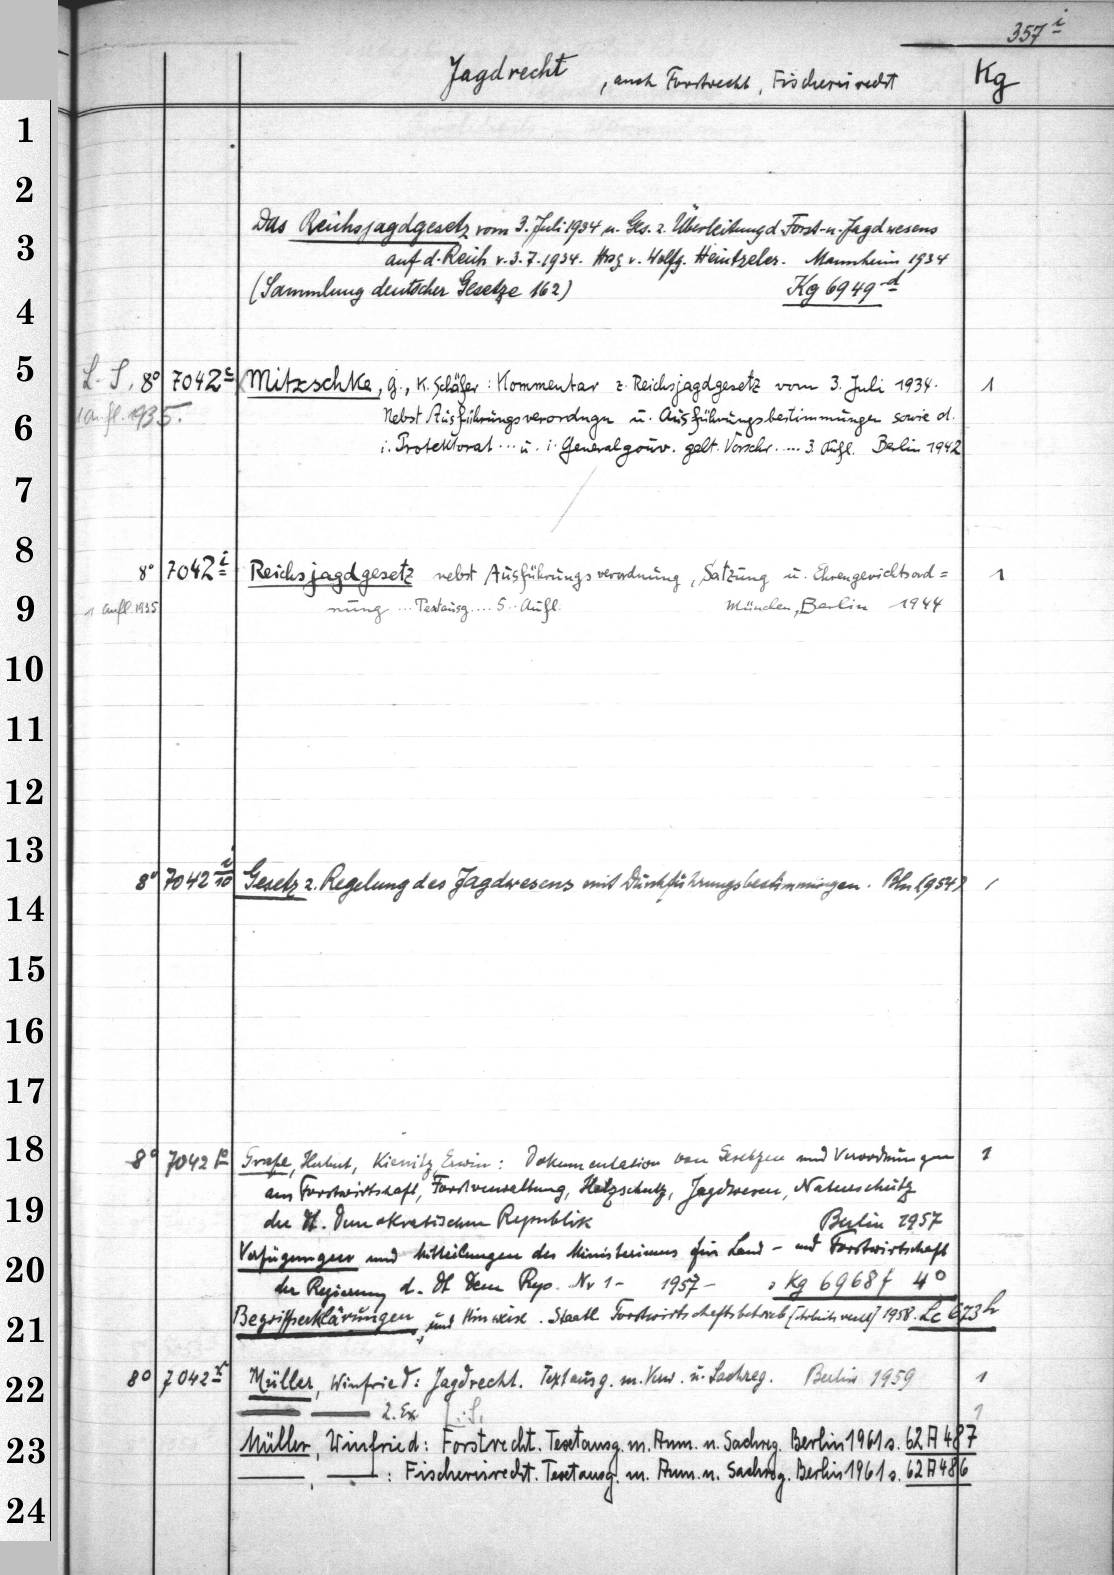 357 i
Jagdrecht, auch Forstrecht, Fischereirecht Kg
1
2
Das Reichsjagdgesetz vom 3. Juli 1934 u. Ges. z. Überleitung d. Forst- u. Jagdwesens
3 auf d. Reich v. 3.7.1934. Hrsg v. Wolfg. Heintzeler. Mannheim 1934
(Sammlung deutscher Gesetze 162) Kg 6949 d
4
5 L. S. 8° 7042 e Mitzschke, G., K. Schäfer: Kommentar z. Reichsjagdgesetz vom 3. Juli 1934. 1
1 Aufl. 1935. Nebst Ausführungsverordngn u. Ausführungsbestimmungen sowie d.
6 i. Protektorat ... u. i. Generalgouv. gelt. Vorschr. .... 3. Aufl. Berlin 1942
7
8 8° 7042 i Reichsjagdgesetz nebst Ausführungsverordnung, Satzung u. Ehrengerichtsord= 1
9 1 Aufl. 1935 nung ... Textausg.... 5. Aufl. München, Berlin 1944
10
11
12
13
8° 7042 i/10 Gesetz z. Regelung des Jagdwesens mit Durchführungsbestimmungen. Bln (954) 1
14
15
16
17
18 8° 7042 p Grafe, Hubert, Kienitz, Erwin: Dokumentation von Gesetzen und Verordnungen 1
aus Forstwirtschaft, Forstverwaltung, Holzschutz, Jagdwesen, Naturschutz
19 der Dt. Demokratischen Republik Berlin 1957
Verfügungen und Mitteilungen des Ministeriums für Land- und Forstwirtschaft
20 der Regierung d. Dt Dem Rep. Nr 1- 1957- s Kg 6968 f 4°
Begriffserklärungen und Hinweise. Staatl Forstwirtschaftsbetrieb 1958. Lc 673 h
21
22 8° 7042 Müller, Winfried: Jagdrecht. Textausg. m. Verw. u. Sachreg. Berlin 1959 1
2. Ex L. S. 1
23 Müller, Winfried: Forstrecht. Textausg. m. Anm. u. Sachreg. Berlin 1961 s. 62 A 487
——, ——: Fischereirecht. Textausg. m. Anm. u. Sachreg. Berlin 1961 s. 62 A 486
24